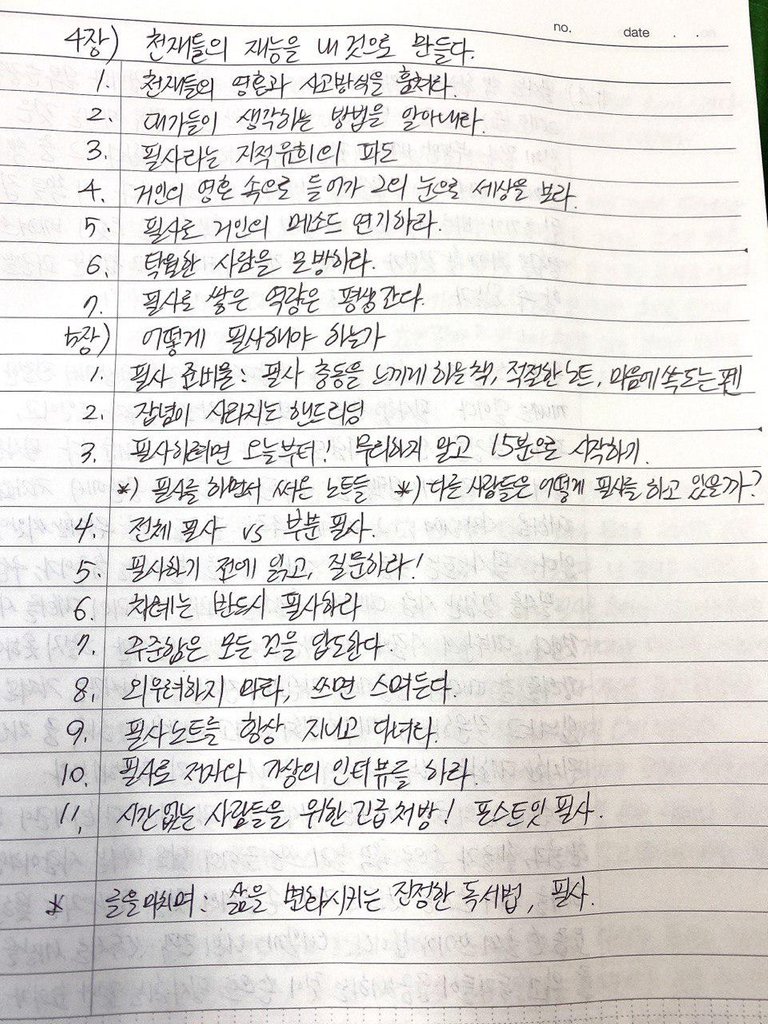 no. date . .
4장) 천재들의 재능을 내 것으로 만들다.
1. 천재들의 영혼과 사고방식을 훔쳐라.
2. 대가들이 생각하는 방법을 알아내라.
3. 필사라는 지적유희의 파도
4. 거인의 영혼 속으로 들어가 그의 눈으로 세상을 보라.
5. 필사로 거인의 메소드 연기하라.
6. 탁월한 사람을 모방하라.
7. 필사로 쌓은 역량은 평생간다.
5장) 어떻게 필사해야 하는가
1. 필사 준비물 : 필사 충동을 느끼게 하는 책, 적절한 노트, 마음에 쏙 드는 펜
2. 잡념이 사라지는 핸드리딩
3. 필사하려면 오늘부터! 무리하지 말고 15분으로 시작하기.
*) 필사를 하면서 써온 노트들 *) 다른 사람들은 어떻게 필사를 하고 있을까?
4. 전체 필사 vs 부분 필사.
5. 필사하기 전에 읽고, 질문하라!
6. 차례는 반드시 필사하라
7. 꾸준함은 모든 것을 압도한다
8. 외우려하지 마라, 쓰면 스며든다.
9. 필사노트를 항상 지니고 다녀라.
10. 필사로 저자와 가상의 인터뷰를 하라.
11. 시간 없는 사람들을 위한 긴급처방! 포스트잇 필사.
* 글을 마치며 : 삶을 변화시키는 진정한 독서법, 필사.